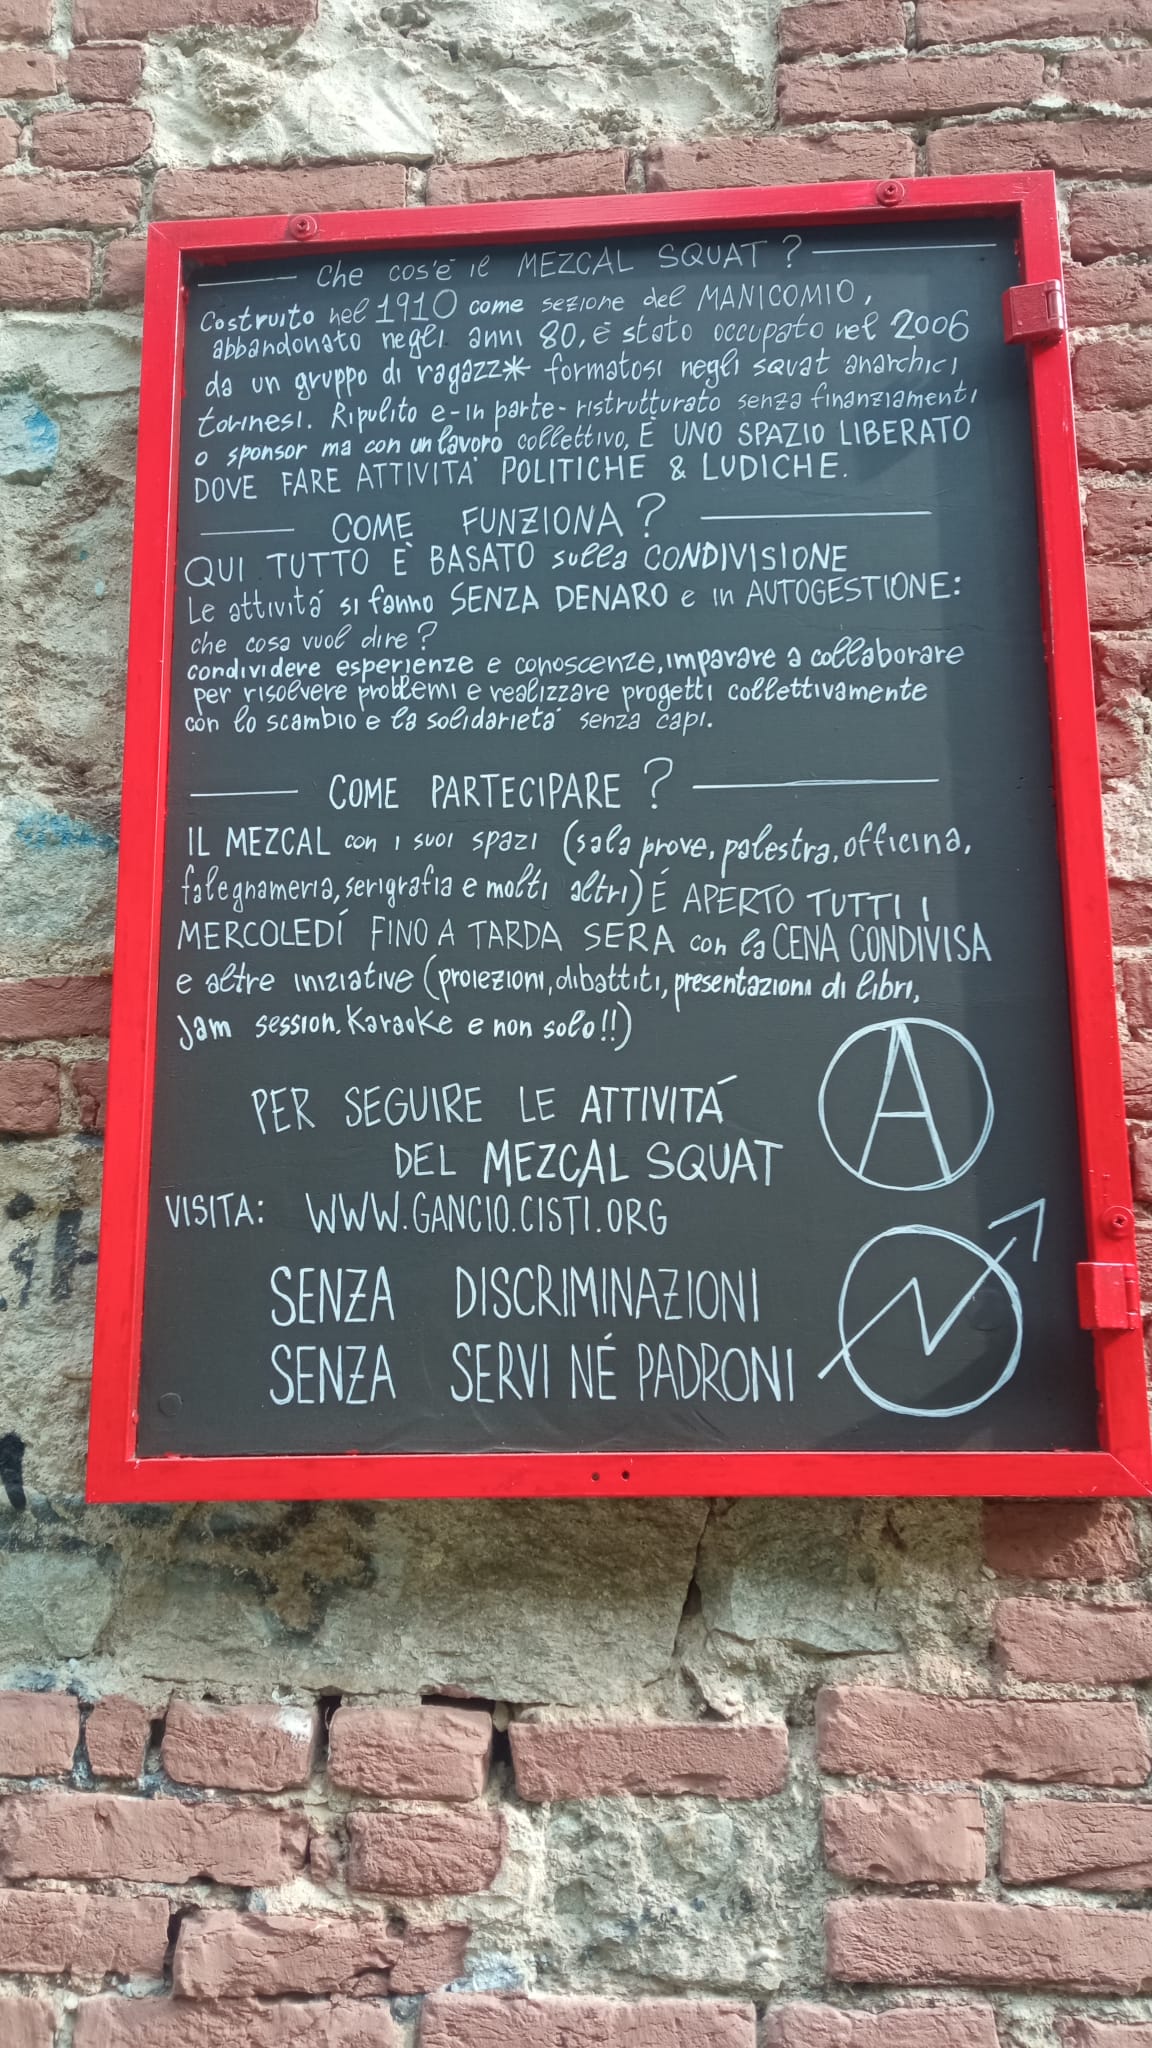 Che cos'è il MEZCAL SQUAT?
Costruito nel 1910 come sezione del MANICOMIO,
abbandonato negli anni 80, è stato occupato nel 2006
da un gruppo di ragazz* formatosi negli squat anarchici
torinesi. Ripulito e-in parte-ristrutturato senza finanziamenti
o sponsor ma con un lavoro collettivo, È UNO SPAZIO LIBERATO
DOVE FARE ATTIVITÀ POLITICHE & LUDICHE.
COME FUNZIONA?
QUI TUTTO È BASATO sulla CONDIVISIONE
Le attivitá si fanno SENZA DENARO e in AUTOGESTIONE:
che cosa vuol dire?
condividere esperienze e conoscenze, imparare a collaborare
per risolvere problemi e realizzare progetti collettivamente
con lo scambio e la solidarietá senza capi.
COME PARTECIPARE?
IL MEZCAL con i suoi spazi (sala prove, palestra, officina,
falegnameria, serigrafia e molti altri) É APERTO TUTTI I
MERCOLEDÍ FINO A TARDA SERA con la CENA CONDIVISA
e altre iniziative (proiezioni, dibattiti, presentazioni di libri,
Jam session, Karaoke e non solo!!)
PER SEGUIRE LE ATTIVITÁ
DEL MEZCAL SQUAT
VISITA: WWW.GANCIO.CISTI.ORG
SENZA DISCRIMINAZIONI
SENZA SERVI NÉ PADRONI
A